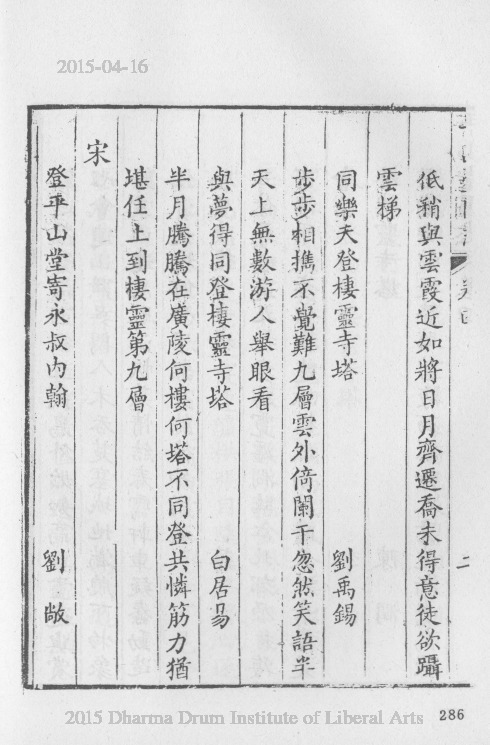 2015-04-16
低稍與雲霞近如將日月齊遷喬未得意徒欲躡
雲梯
同樂天登棲靈寺塔 劉禹錫
步步相攜不覺難九層雲外倚闌干忽然笑語半
天上無數游人舉眼看
與夢得同登棲靈寺塔 白居易
半月騰騰在廣陵何樓何塔不同登共憐筋力猶
堪任上到棲靈第九層
宋
登平山堂寄永叔內翰 劉敞
2015 Dharma Drum Institute of Liberal Arts
286